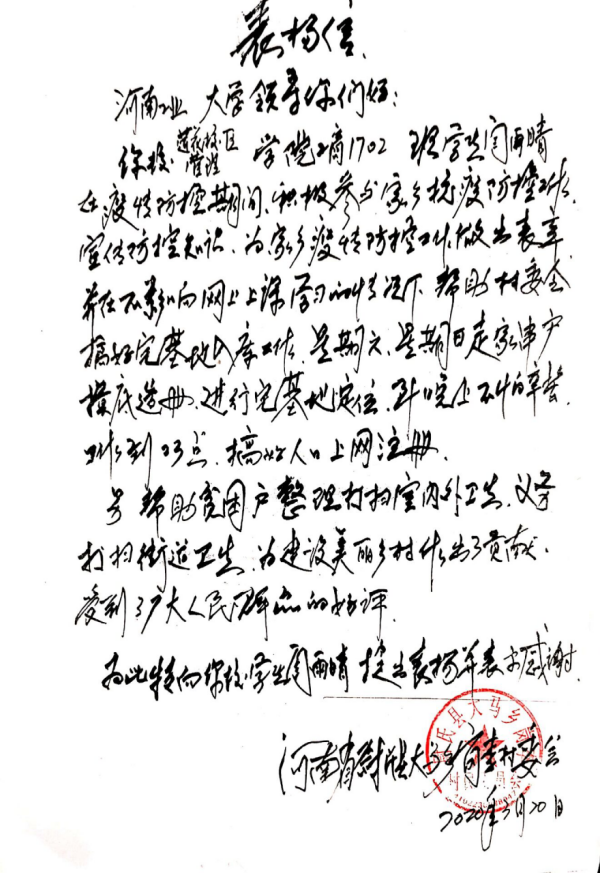 表扬信
河南工业大学领导你们好:
你校莲花校区管理学院工商1702班学生闫雨晴
在疫情防控期间、积极参与家乡抗疫防控工作、
宣传防控知识、为家乡疫情防控工作做出表率
并在不影响网上上课学习的情况下、帮助村委会
搞好宅基地入库工作、星期六、星期日走家串户
摸底造册、进行宅基地定位、
工作到23点、搞好人口上网注册.
帮助贫困户整理打扫室内外卫生、义务
打扫街道卫生、为建设美丽乡村作出了贡献、
受到了广大人民群众的好评.
为此特向你校学生闫雨晴提出表扬并表示感谢.
尉氏县大马乡
河南省尉氏县大马乡村委会
2020年3月20日